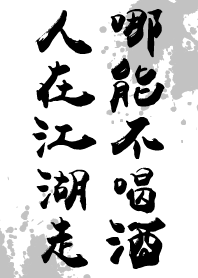 哪能不喝酒
人在江湖走